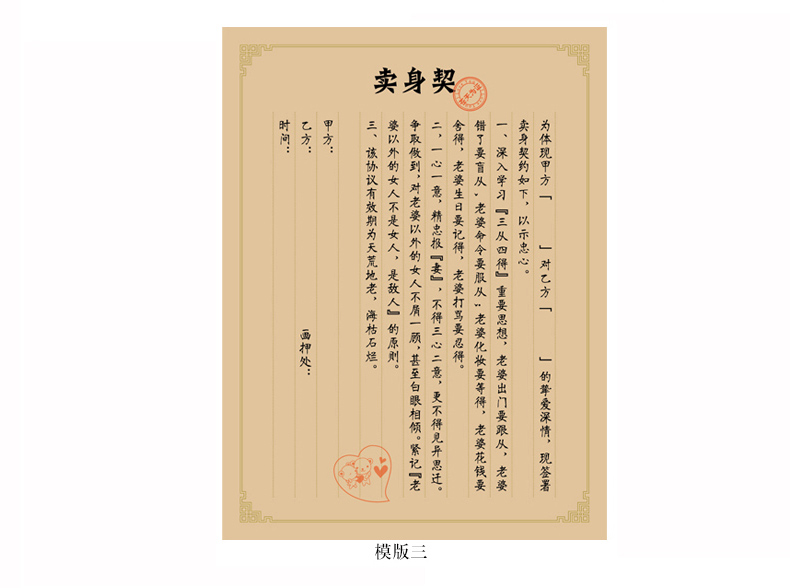 卖身契
为体现甲方「　　」对乙方「　　」的挚爱深情，现签署
卖身契约如下，以示忠心。
一、深入学习『三从四得』重要思想，老婆出门要跟从，老婆
错了要盲从，老婆命令要服从；老婆化妆要等得，老婆花钱要
舍得，老婆生日要记得，老婆打骂要忍得。
二，一心一意，精忠报『妻』，不得三心二意，更不得见异思迁。
争取做到，对老婆以外的女人不屑一顾，甚至白眼相倾。紧记『老
婆以外的女人不是女人，是敌人』的原则。
三、该协议有效期为天荒地老，海枯石烂。
甲方：
乙方：
画押处：
时间：
模版三